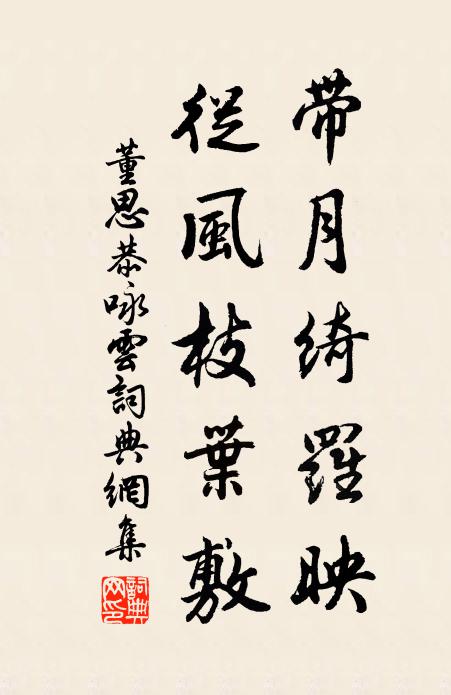 帶月綺羅映
從風枝葉敷
董思恭咏雲詞典網集
詞典網印